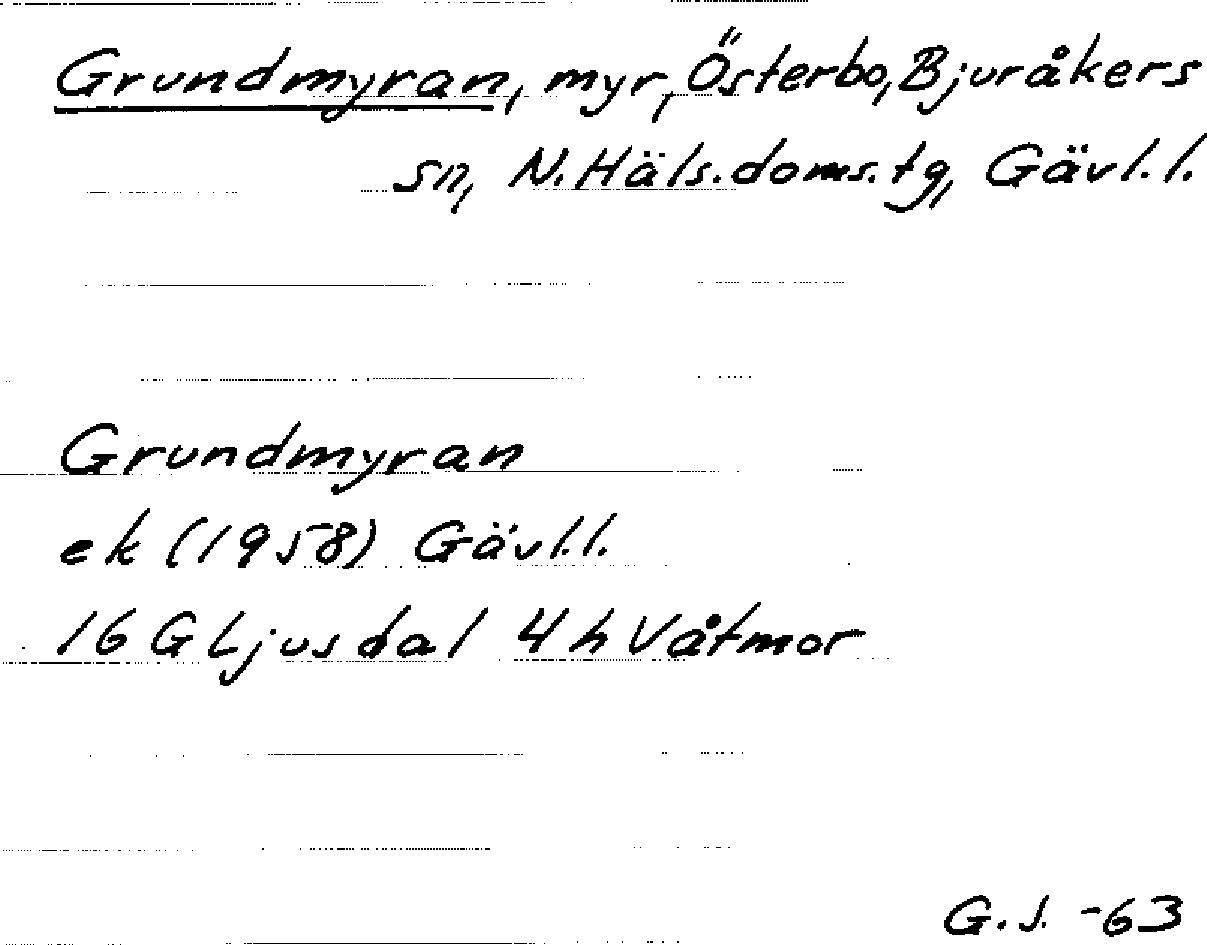 Grundmyran, myr, Österbo, Bjuråkers
sn, N. Häls. doms. tg, Gävl. l.
Grundmyran
ek (1958) Gävl. l.
16 G Ljusdal 4 h Våtmor
G. J. -63